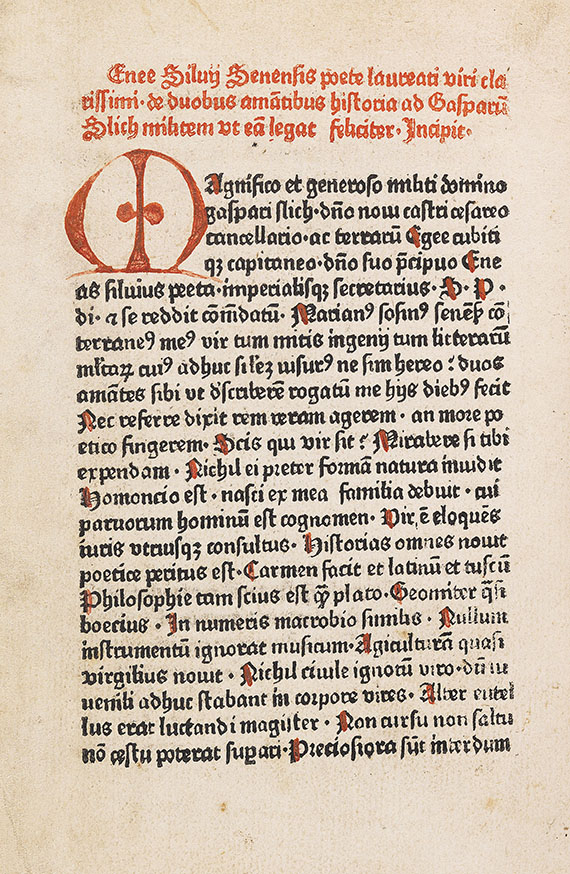 Enee Siluij Senensis poete laureati viri cla
rissimi· de duobus amātibus historia ad Gasparū
Slich militem vt eā legat feliciter· Incipit·
MAgnifico et generoso militi domino
gaspari slich·dn̄o noui castri cesareo
cancellario·ac terrarū Egee cubiti
qꝫ capitaneo·dn̄o suo p̄cipuo Ene
as siluius poeta·imperialisqꝫ secretarius· S· P·
di· ⁊ se reddit cōmdatū· Marianꝰ sosinꝰ senēs̄ cō
terraneꝰ meꝰ vir tum mitis ingenij tum litterarū
mltaꝝ cuiꝰ adhuc sil'eꝫ uisurꝰ ne sim hereo ? duos
amātes sibi vt dscriberē rogatū me hijs diebꝰ fecit
Nec referre dixit rem veram agerem· an more po
etico fingerem· Scis qui vir sit ? Mirabere si tibi
expendam· Nichil ei preter formā natura inuidit
Homoncio est· nasci ex mea familia debuit· cui
paruorum hominū est cognomen· Vir ē eloquēs
iuris vtriusqꝫ consultus· Historias omnes nouit
poetice peritus est· Carmen facit et latinū et tuscū
Philosophie tam scius est qꝙ plato· Geometer q̄si
boecius· In numeris macrobio similis· Nullum
instrumentū ignorat musicum· Agiculturā quasi
virgilius nouit· Nichil ciuile ignotū viro·dū iu
uenili adhuc stabant in corpore vires· Alter entel
lus erat luctandi magister· Non cursu non saltu
nō cestu poterat suꝑari· Preciosiora sūt interdum